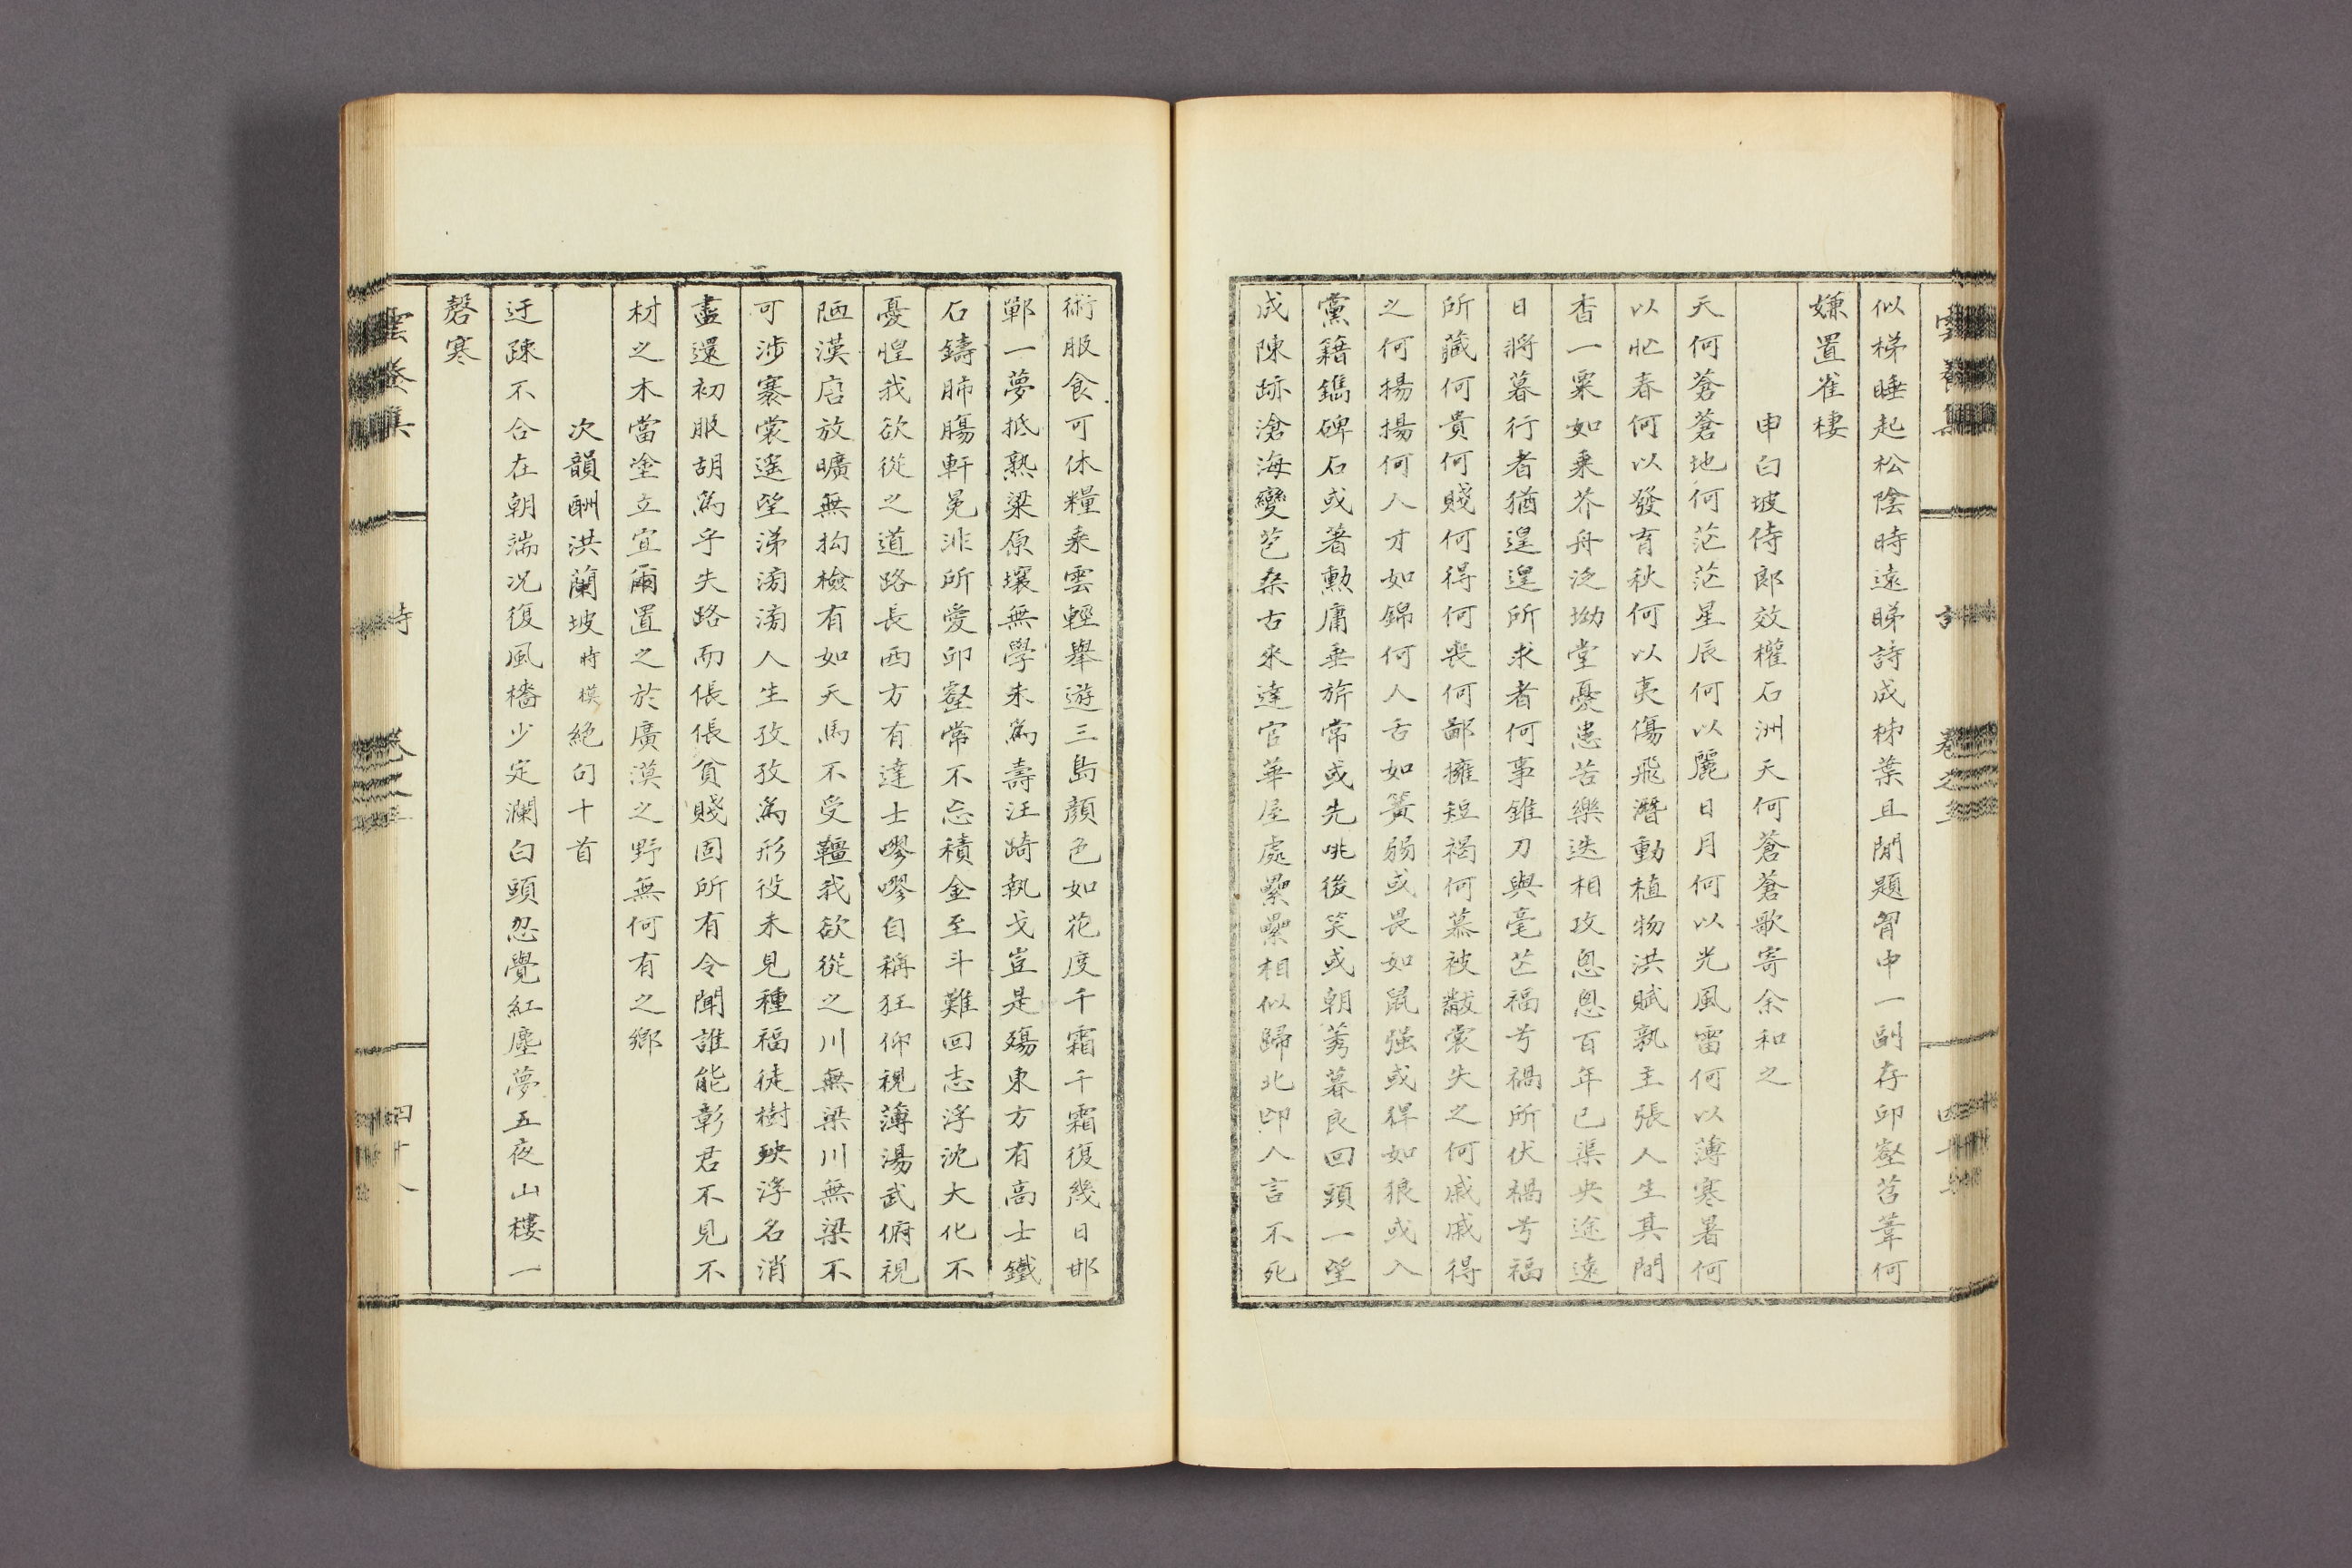 似梯睡起松陰時遠睇詩成柹葉且閒題胷中一副存邱壑苕葦何
嫌置雀棲
申白坡侍郎效權石洲天何蒼蒼歌寄余和之
天何蒼蒼地何茫茫星辰何以麗日月何以光風雷何以薄寒暑何
以忙春何以發育秋何以夷傷飛潛動植物洪賦孰主張人生其間
杳一粟如乘芥舟泛坳堂憂患苦樂迭相攻悤悤百年已渠央途遠
日將暮行者猶遑遑所求者何事錐刀與毫芒福兮禍所伏禍兮福
所藏何貴何賤何得何喪何鄙擁短褐何慕被黻裳失之何戚戚得
之何揚揚何人才如錦何人舌如簧弱或畏如鼠强或猂如狼或入
黨籍鐫碑石或著勳庸垂旂常或先咷後笑或朝莠暮良回頭一望
成陳跡滄海變芭桑古來達官華屋處纍纍相似歸北邙人言不死
雲養集 詩 卷之三 四十七
術服食可休糧乘雲輕舉遊三島顔色如花度千霜千霜復幾日邯
鄲一夢抵熟粱原壤無學未爲壽汪踦執戈豈是殤東方有高士鐵
石鑄肺膓軒冕非所愛邱壑常不忘積金至斗難回志浮沈大化不
憂惶我欲從之道路長西方有達士嘐嘐自稱狂仰視薄湯武俯視
陋漢唐放曠無拘檢有如天馬不受韁我欲從之川無梁川無梁不
可涉褰裳遙望涕滂滂人生孜孜爲形役未見種福徒樹殃浮名消
盡還初服胡爲乎失路而倀倀貧賤固所有令聞誰能彰君不見不
材之木當塗立宜爾置之於廣漠之野無何有之鄉
次韻酬洪蘭坡時模絕句十首
迂疎不合在朝端况復風檣少定瀾白頭忽覺紅塵夢五夜山樓一
磬寒
雲養集 詩 卷之三 四十八